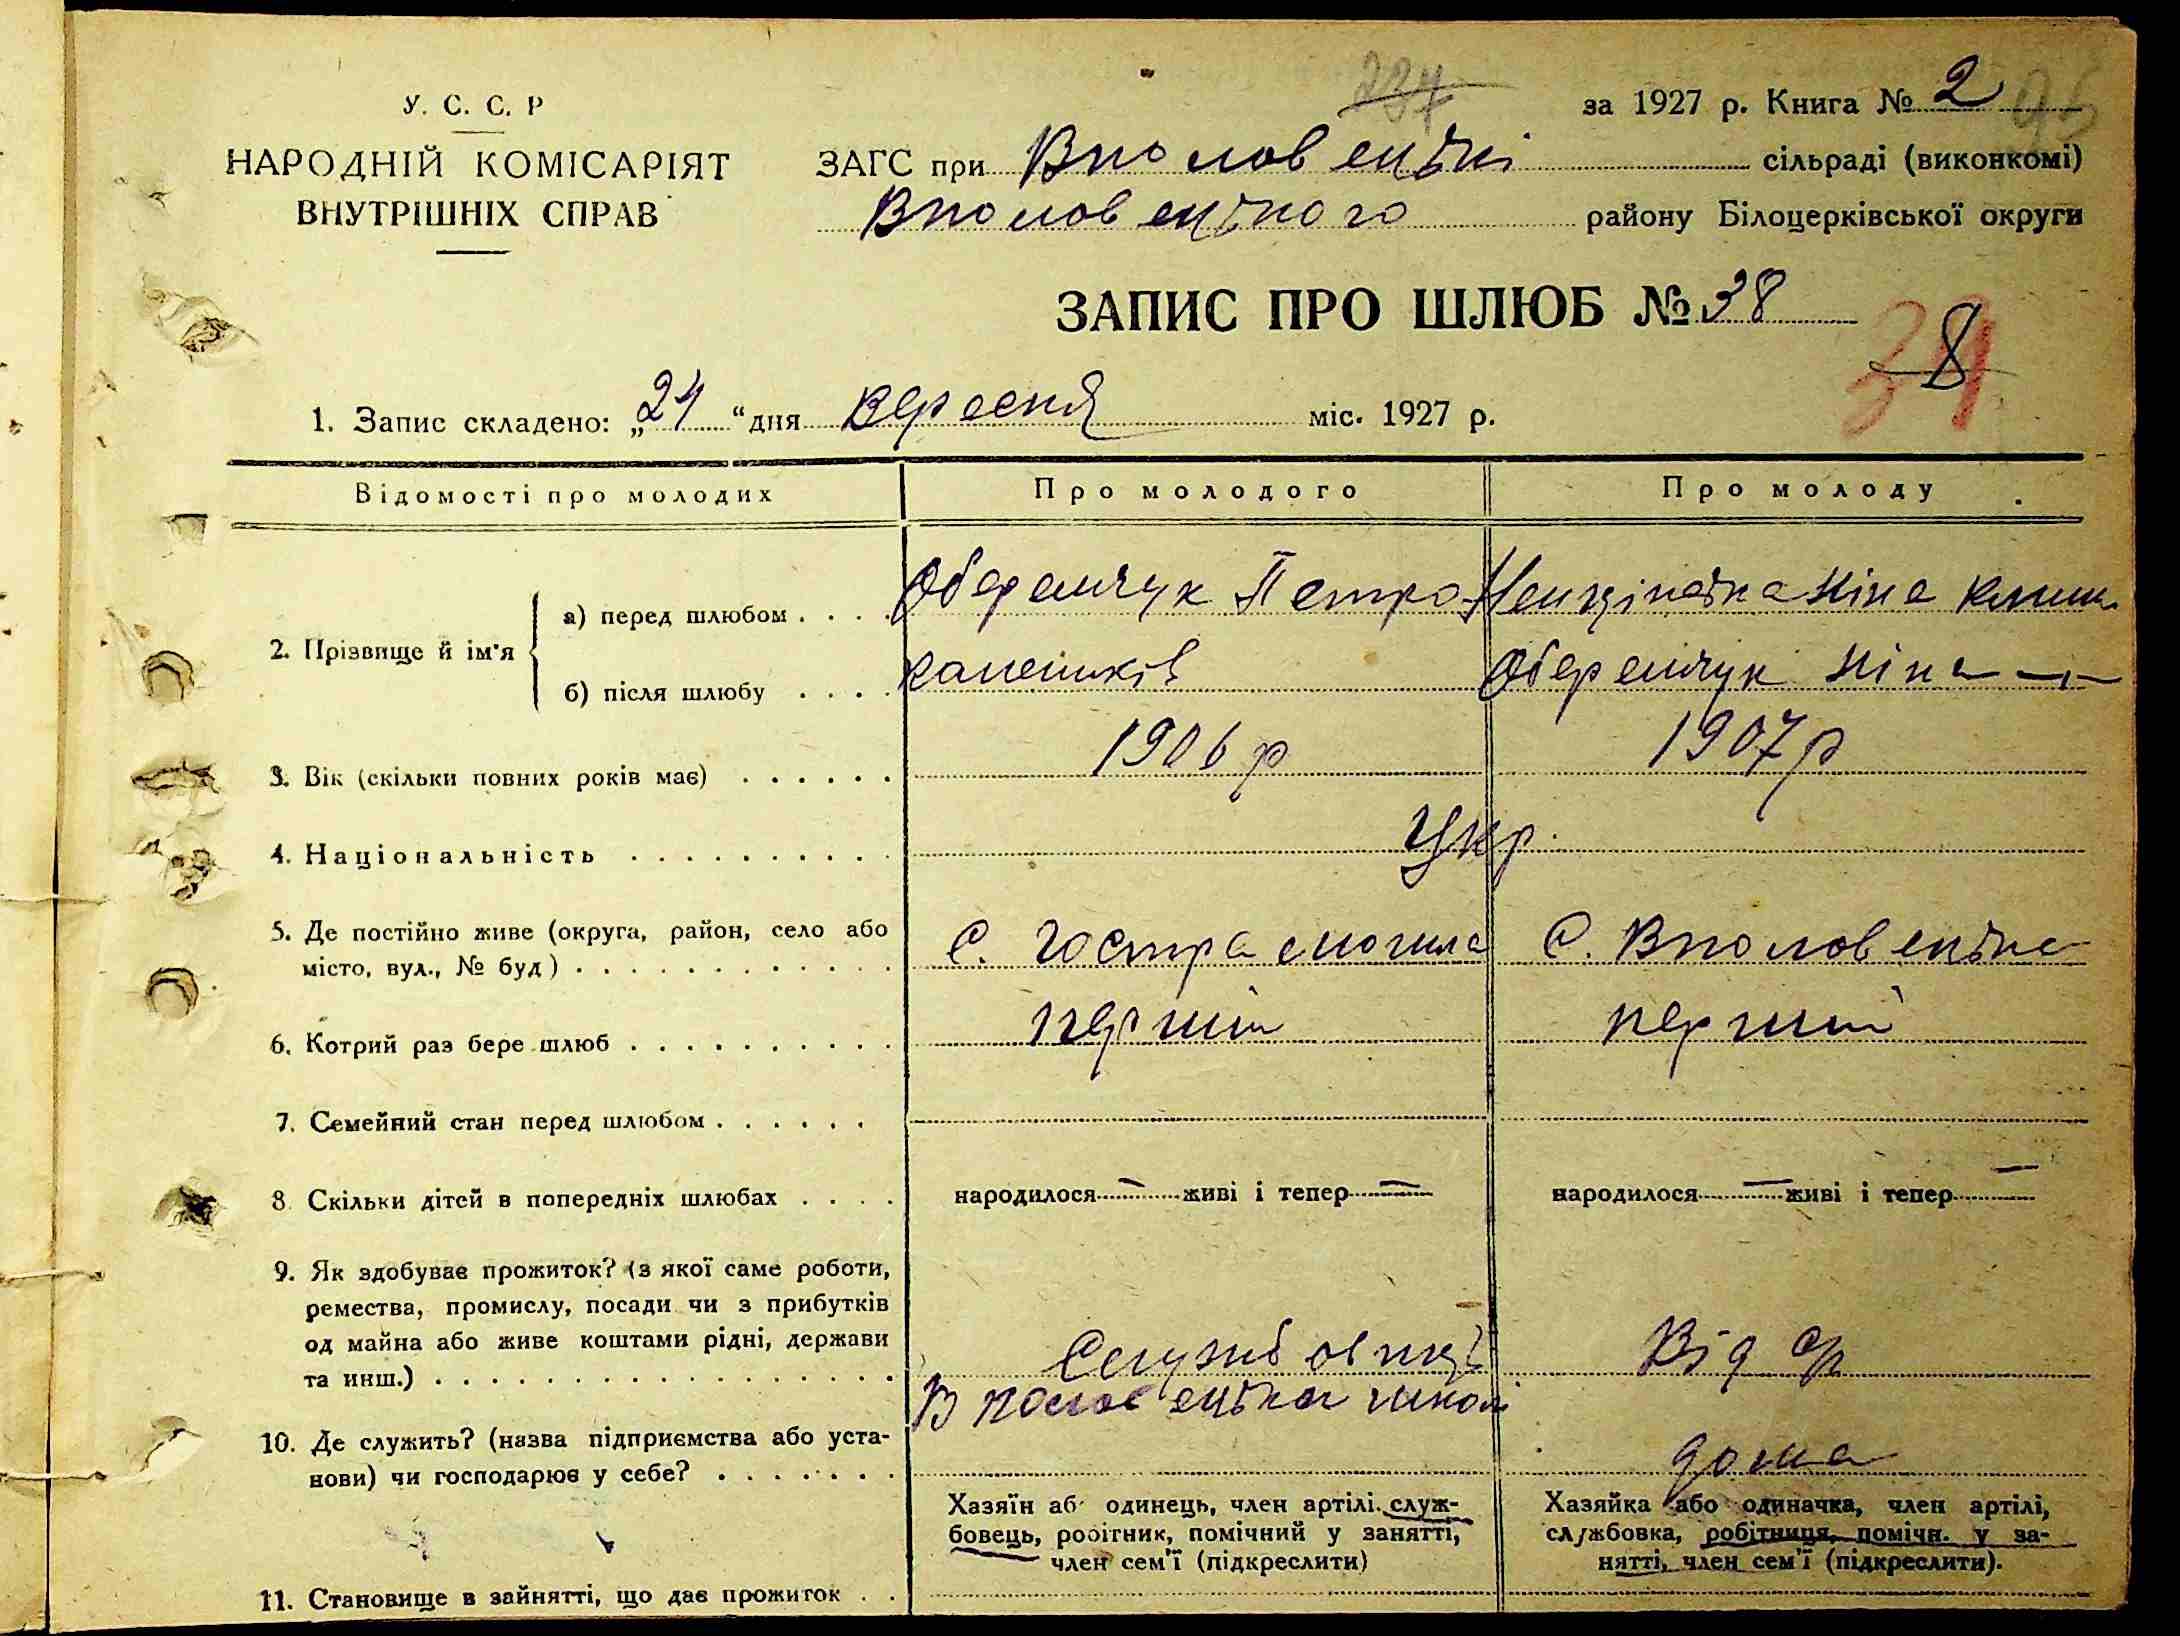 237
за 1927 р. Книга № 2 95
У. С. С. Р
НАРОДНІЙ КОМІСАРІЯТ
ВНУТРІШНІХ СПРАВ
ЗАГС при Вполовецькі сільраді (виконкомі)
Вполовецького району Білоцерківської округи
ЗАПИС ПРО ШЛЮБ № 38
31 8
1. Запис складено: „24“ дня вересня міс. 1927 р.
Відомості про молодих Про молодого Про молоду
2. Прізвище й ім'я
а) перед шлюбом Оберемчук Петро Ніна
б) після шлюбу Оберемчук Ніна —"—
3. Вік (скільки повних років має) 1906 р 1907 р
4. Національність Укр.
5. Де постійно живе (округа, район, село або
місто, вул., № буд) С. Гостра могила С. Вполовецьке
6. Котрий раз бере шлюб перший перший
7. Семейний стан перед шлюбом
8. Скільки дітей в попередніх шлюбах народилося — живі і тепер — народилося — живі і тепер —
9. Як здобуває прожиток? (з якої саме роботи,
ремества, промислу, посади чи з прибутків
од майна або живе коштами рідні, держави
та инш.) Службовець Від ср
В половецької школі
10. Де служить? (назва підприємства або уста-
нови) чи господарює у себе? дома
Хазяїн або одинець, член артілі, служ-
бовець, робітник, помічний у занятті,
член сем'ї (підкреслити)
Хазяйка або одиначка, член артілі,
службовка, робітниця, помічн. у за-
нятті, член сем'ї (підкреслити).
11. Становище в зайнятті, що дає прожиток